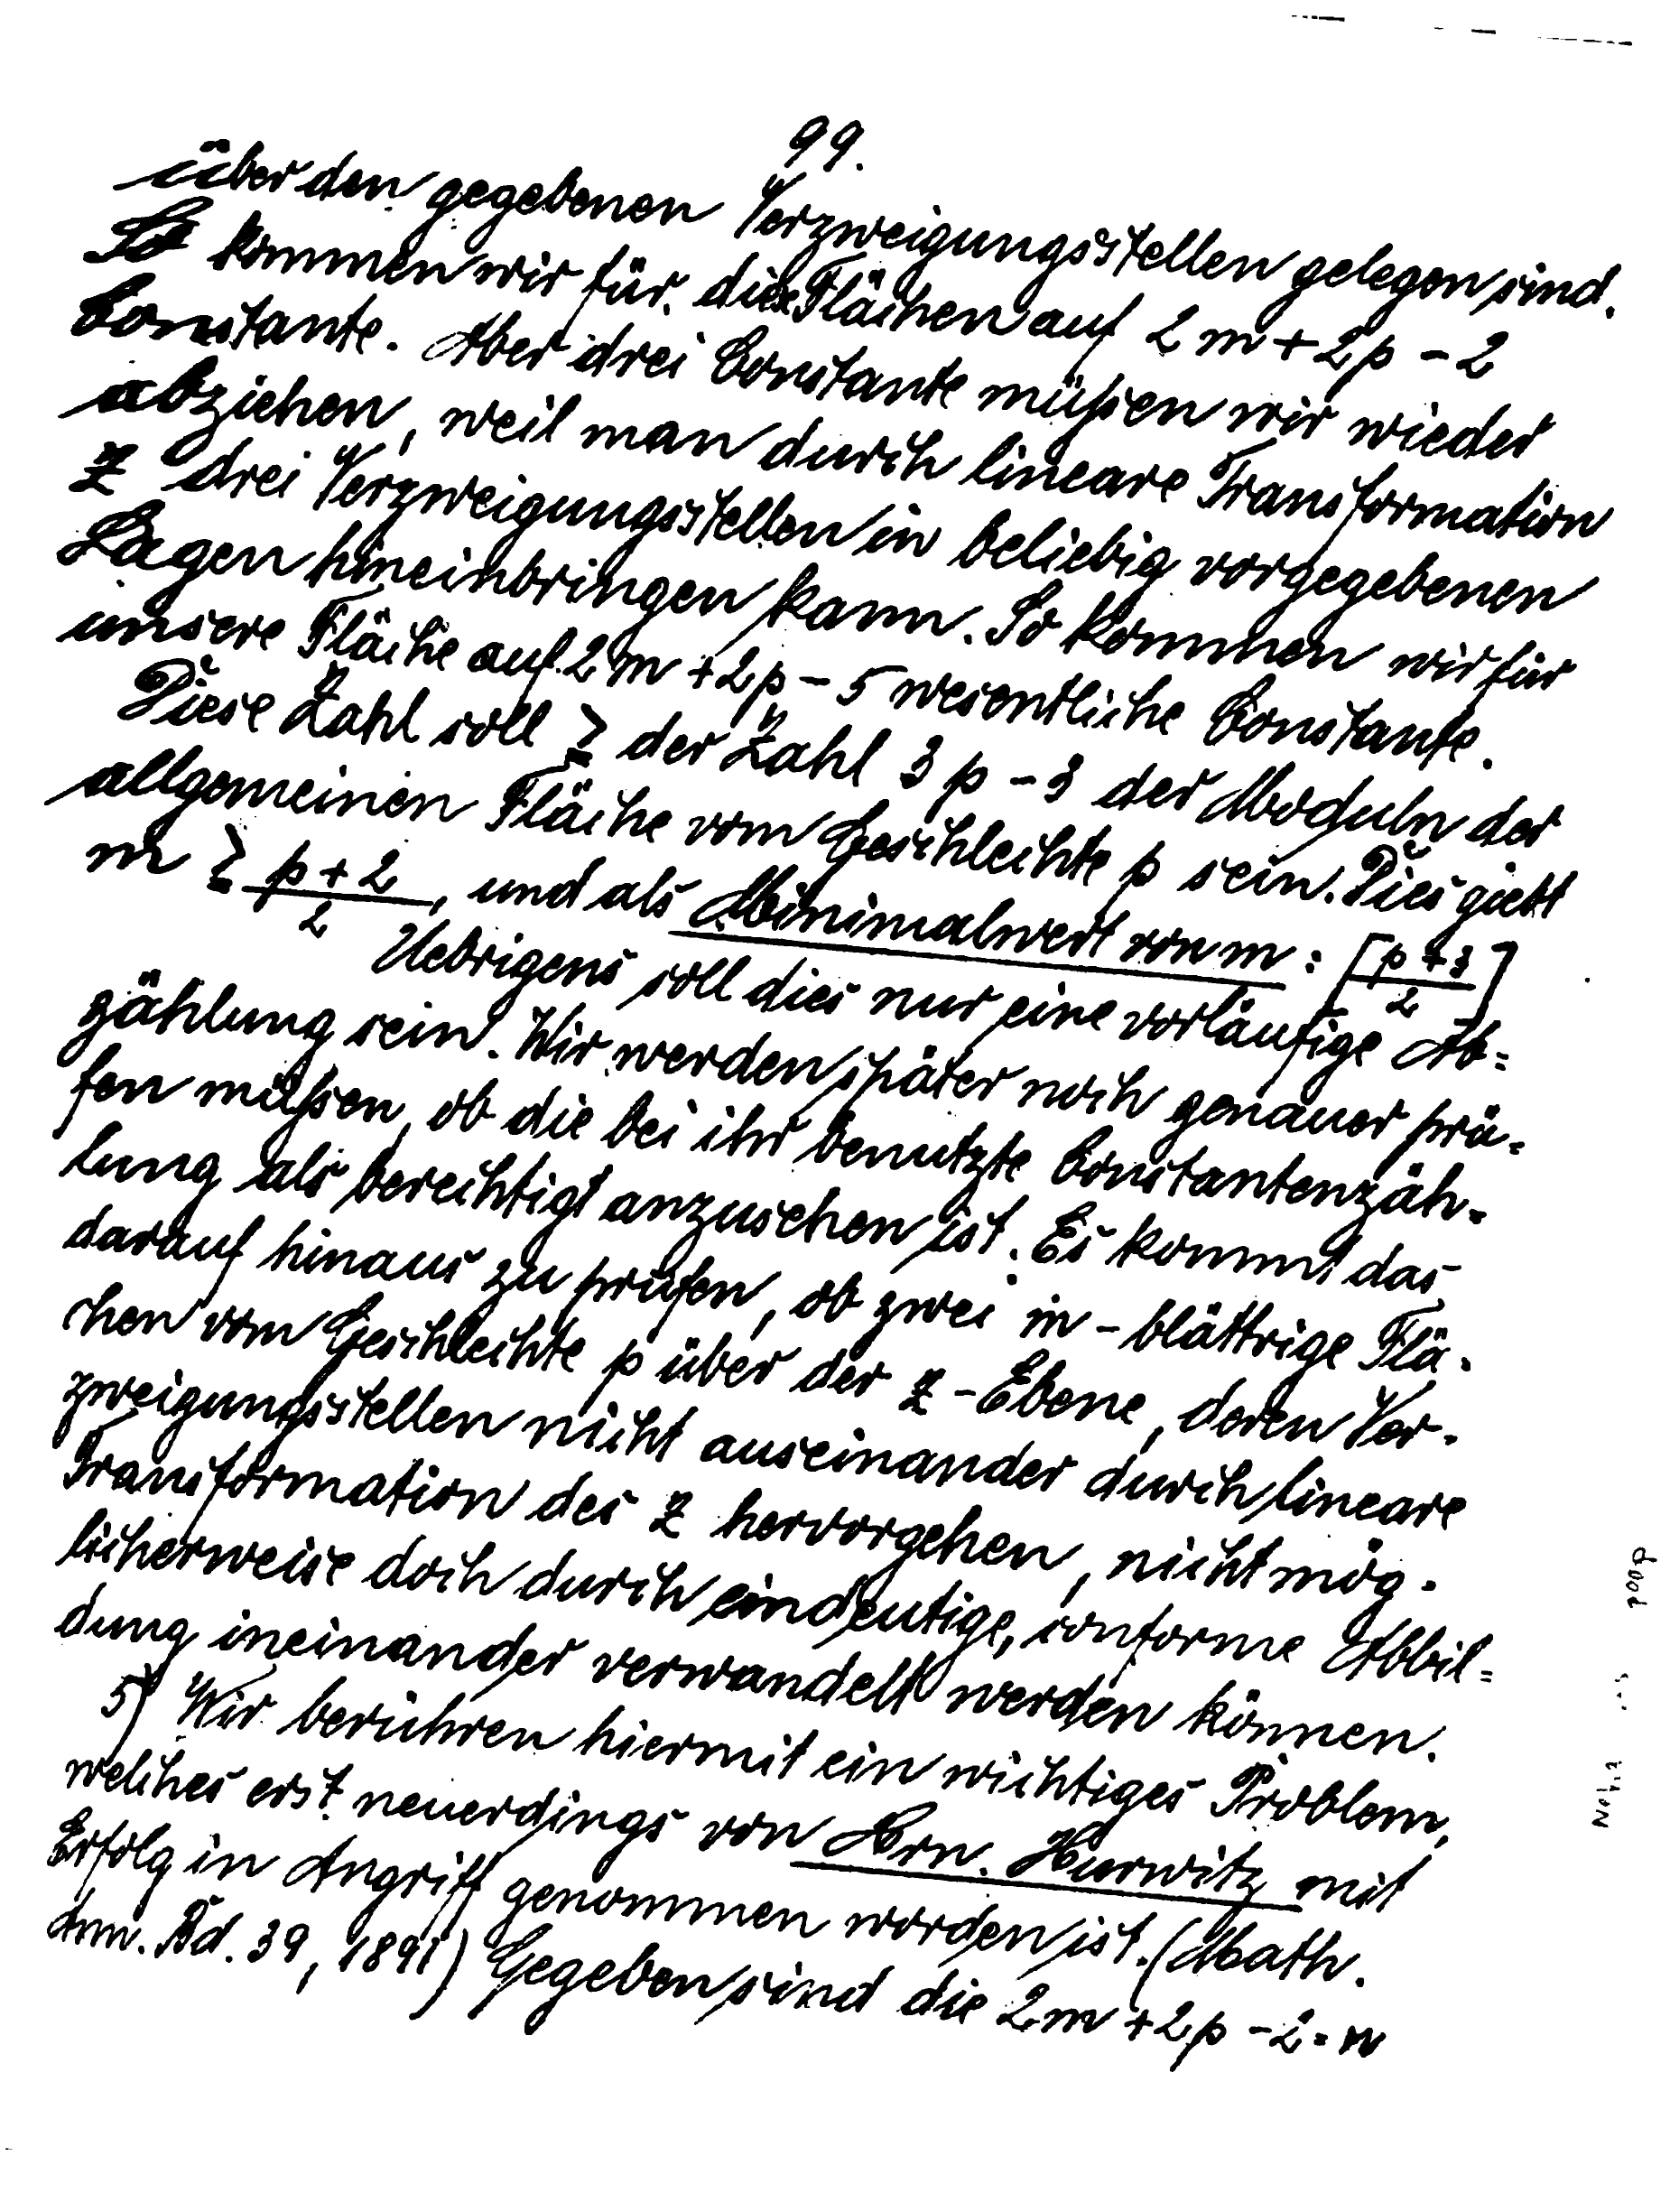 99.
über den gegebenen Verzweigungsstellen gelegen sind.
So kommen wir für diese Flächen auf 2m+2p-2
Constante. Aber drei Constante müßen wir wieder
abziehen, weil man durch lineare Transformation
z drei Verzweigungsstellen in beliebig vorgegebenen
Lagen hineinbringen kann. So kommen wir für
unsere Fläche auf 2m+2p-5 wesentliche Constante.
Diese Zahl soll ≧ der Zahl 3p-3 der Moduln der
allgemeinen Fläche vom Geschlechte p sein. Dies giebt
m ≧ (p+2)/2, und als Minimalwert von m: [(p+3)/2]
Uebrigens soll dies nur eine vorläufige Ab=
zählung sein. Wir werden später noch genauer prü-
fen müßen, ob die bei ihr benutzte Constantenzäh-
lung als berechtigt anzusehen ist. Es kommt das
darauf hinaus zu prüfen, ob zwei m-blättrige Flä-
chen vom Geschlechte p über der z-Ebene, deren Ver-
zweigungsstellen nicht auseinander durch lineare
Transformation des z hervorgehen, nicht mög-
licherweise doch durch eindeutige, conforme Abbil=
dung ineinander verwandelt werden können.
5) Wir berühren hiermit ein wichtiges Problem,
welches erst neuerdings von Hrn. Hurwitz mit
Erfolg in Angriff genommen worden ist. (Math.
Ann. Bd. 39, 1891) Gegeben sind die 2m+2p-2=w